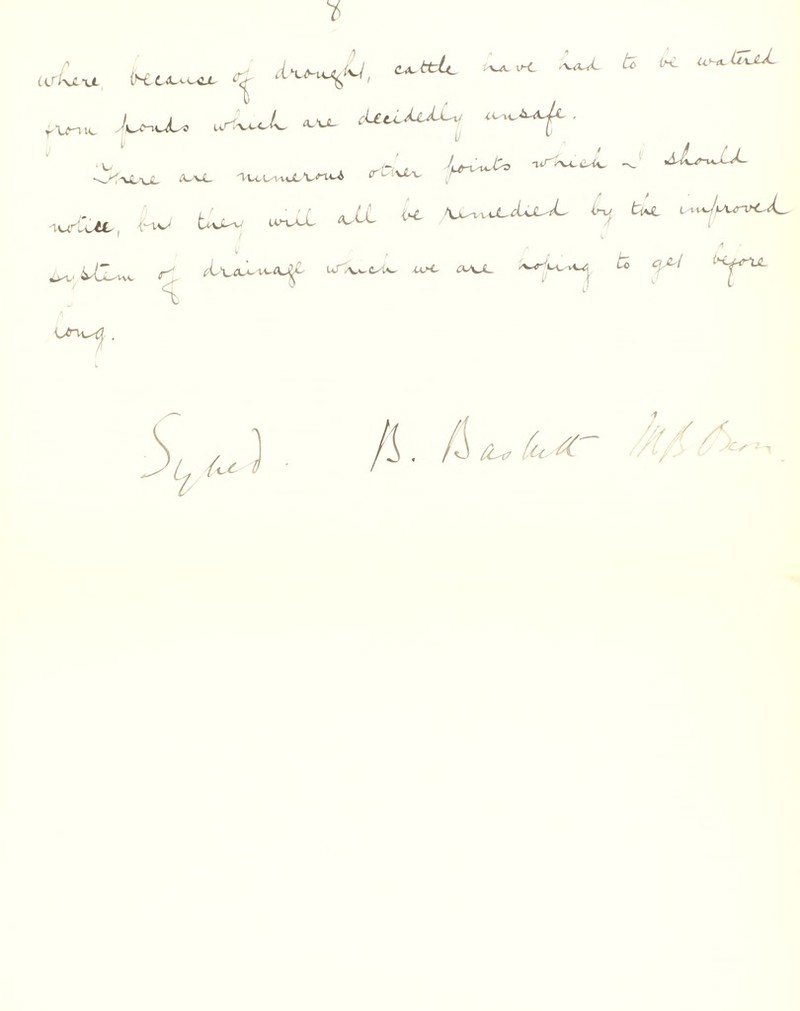 8
where, because of drought, cattle have had to be watered
from ponds which are decidedly unsafe.
There are numerous other points which I should
notice, but they will all be remedied by the improved
system of drainage which we are hoping to get before
long.
Signed. B. Baskett MB Oxon.